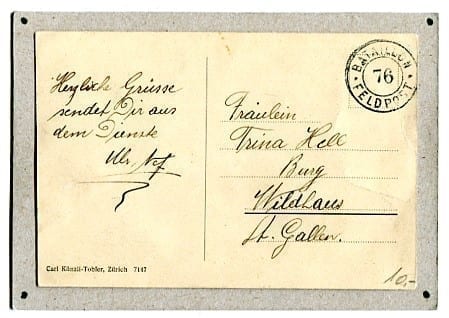 Herzliche Grüsse
sendet Dir aus
dem Dienste
Ulr.
BATAILLON
76
FELDPOST
Fräulein
Trina Hell
Burg
Wildhaus
St. Gallen.
Carl Künzli-Tobler, Zürich 7147
10.-